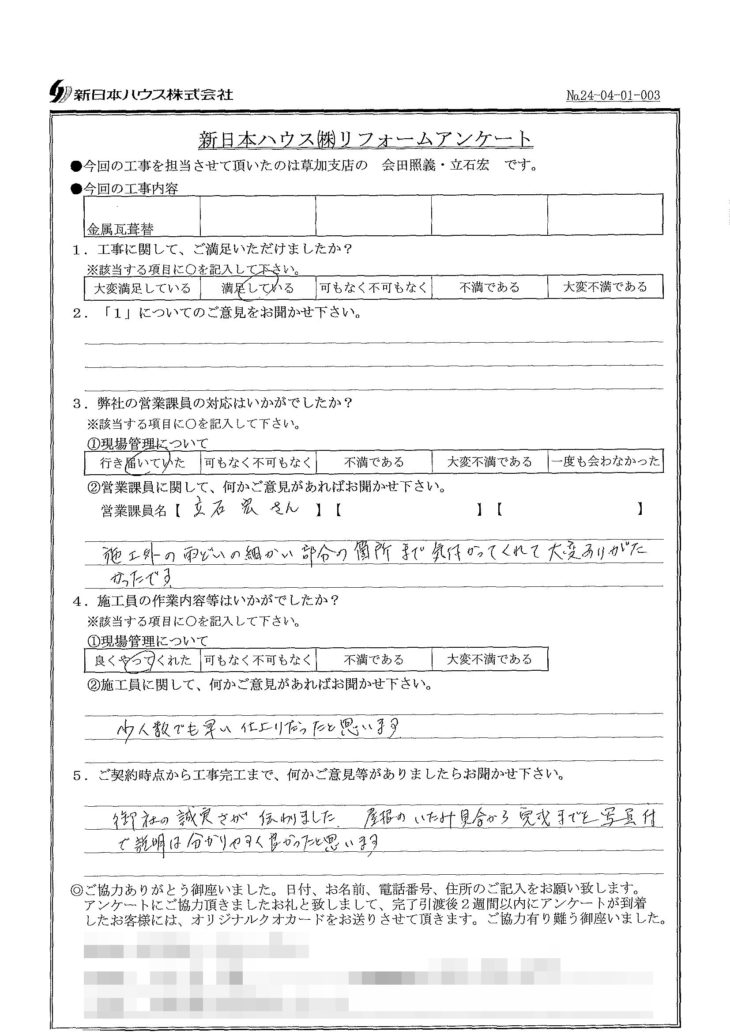 新日本ハウス株式会社
№24-04-01-003
新日本ハウス㈱リフォームアンケート
●今回の工事を担当させて頂いたのは草加支店の 会田照義・立石宏 です。
●今回の工事内容
金属瓦葺替
1．工事に関して、ご満足いただけましたか？
※該当する項目に○を記入して下さい。
大変満足している 満足している 可もなく不可もなく 不満である 大変不満である
2．「1」についてのご意見をお聞かせ下さい。
3．弊社の営業課員の対応はいかがでしたか？
※該当する項目に○を記入して下さい。
①現場管理について
行き届いていた 可もなく不可もなく 不満である 大変不満である 一度も会わなかった
②営業課員に関して、何かご意見があればお聞かせ下さい。
営業課員名【 立石 宏 さん 】【 】【 】
施工外の雨どいの細かい部分の箇所まで気付かってくれて大変ありがた
かったです
4．施工員の作業内容等はいかがでしたか？
※該当する項目に○を記入して下さい。
①現場管理について
良くやってくれた 可もなく不可もなく 不満である 大変不満である
②施工員に関して、何かご意見があればお聞かせ下さい。
少人数でも早い仕上りだったと思います
5．ご契約時点から工事完工まで、何かご意見等がありましたらお聞かせ下さい。
御社の誠実さが伝わりました 屋根のいたみ具合から完成までを写真付
で説明は分かりやすく良かったと思います
◎ご協力ありがとう御座いました。日付、お名前、電話番号、住所のご記入をお願い致します。
アンケートにご協力頂きましたお礼と致しまして、完了引渡後2週間以内にアンケートが到着
したお客様には、オリジナルクオカードをお送りさせて頂きます。ご協力有り難う御座いました。